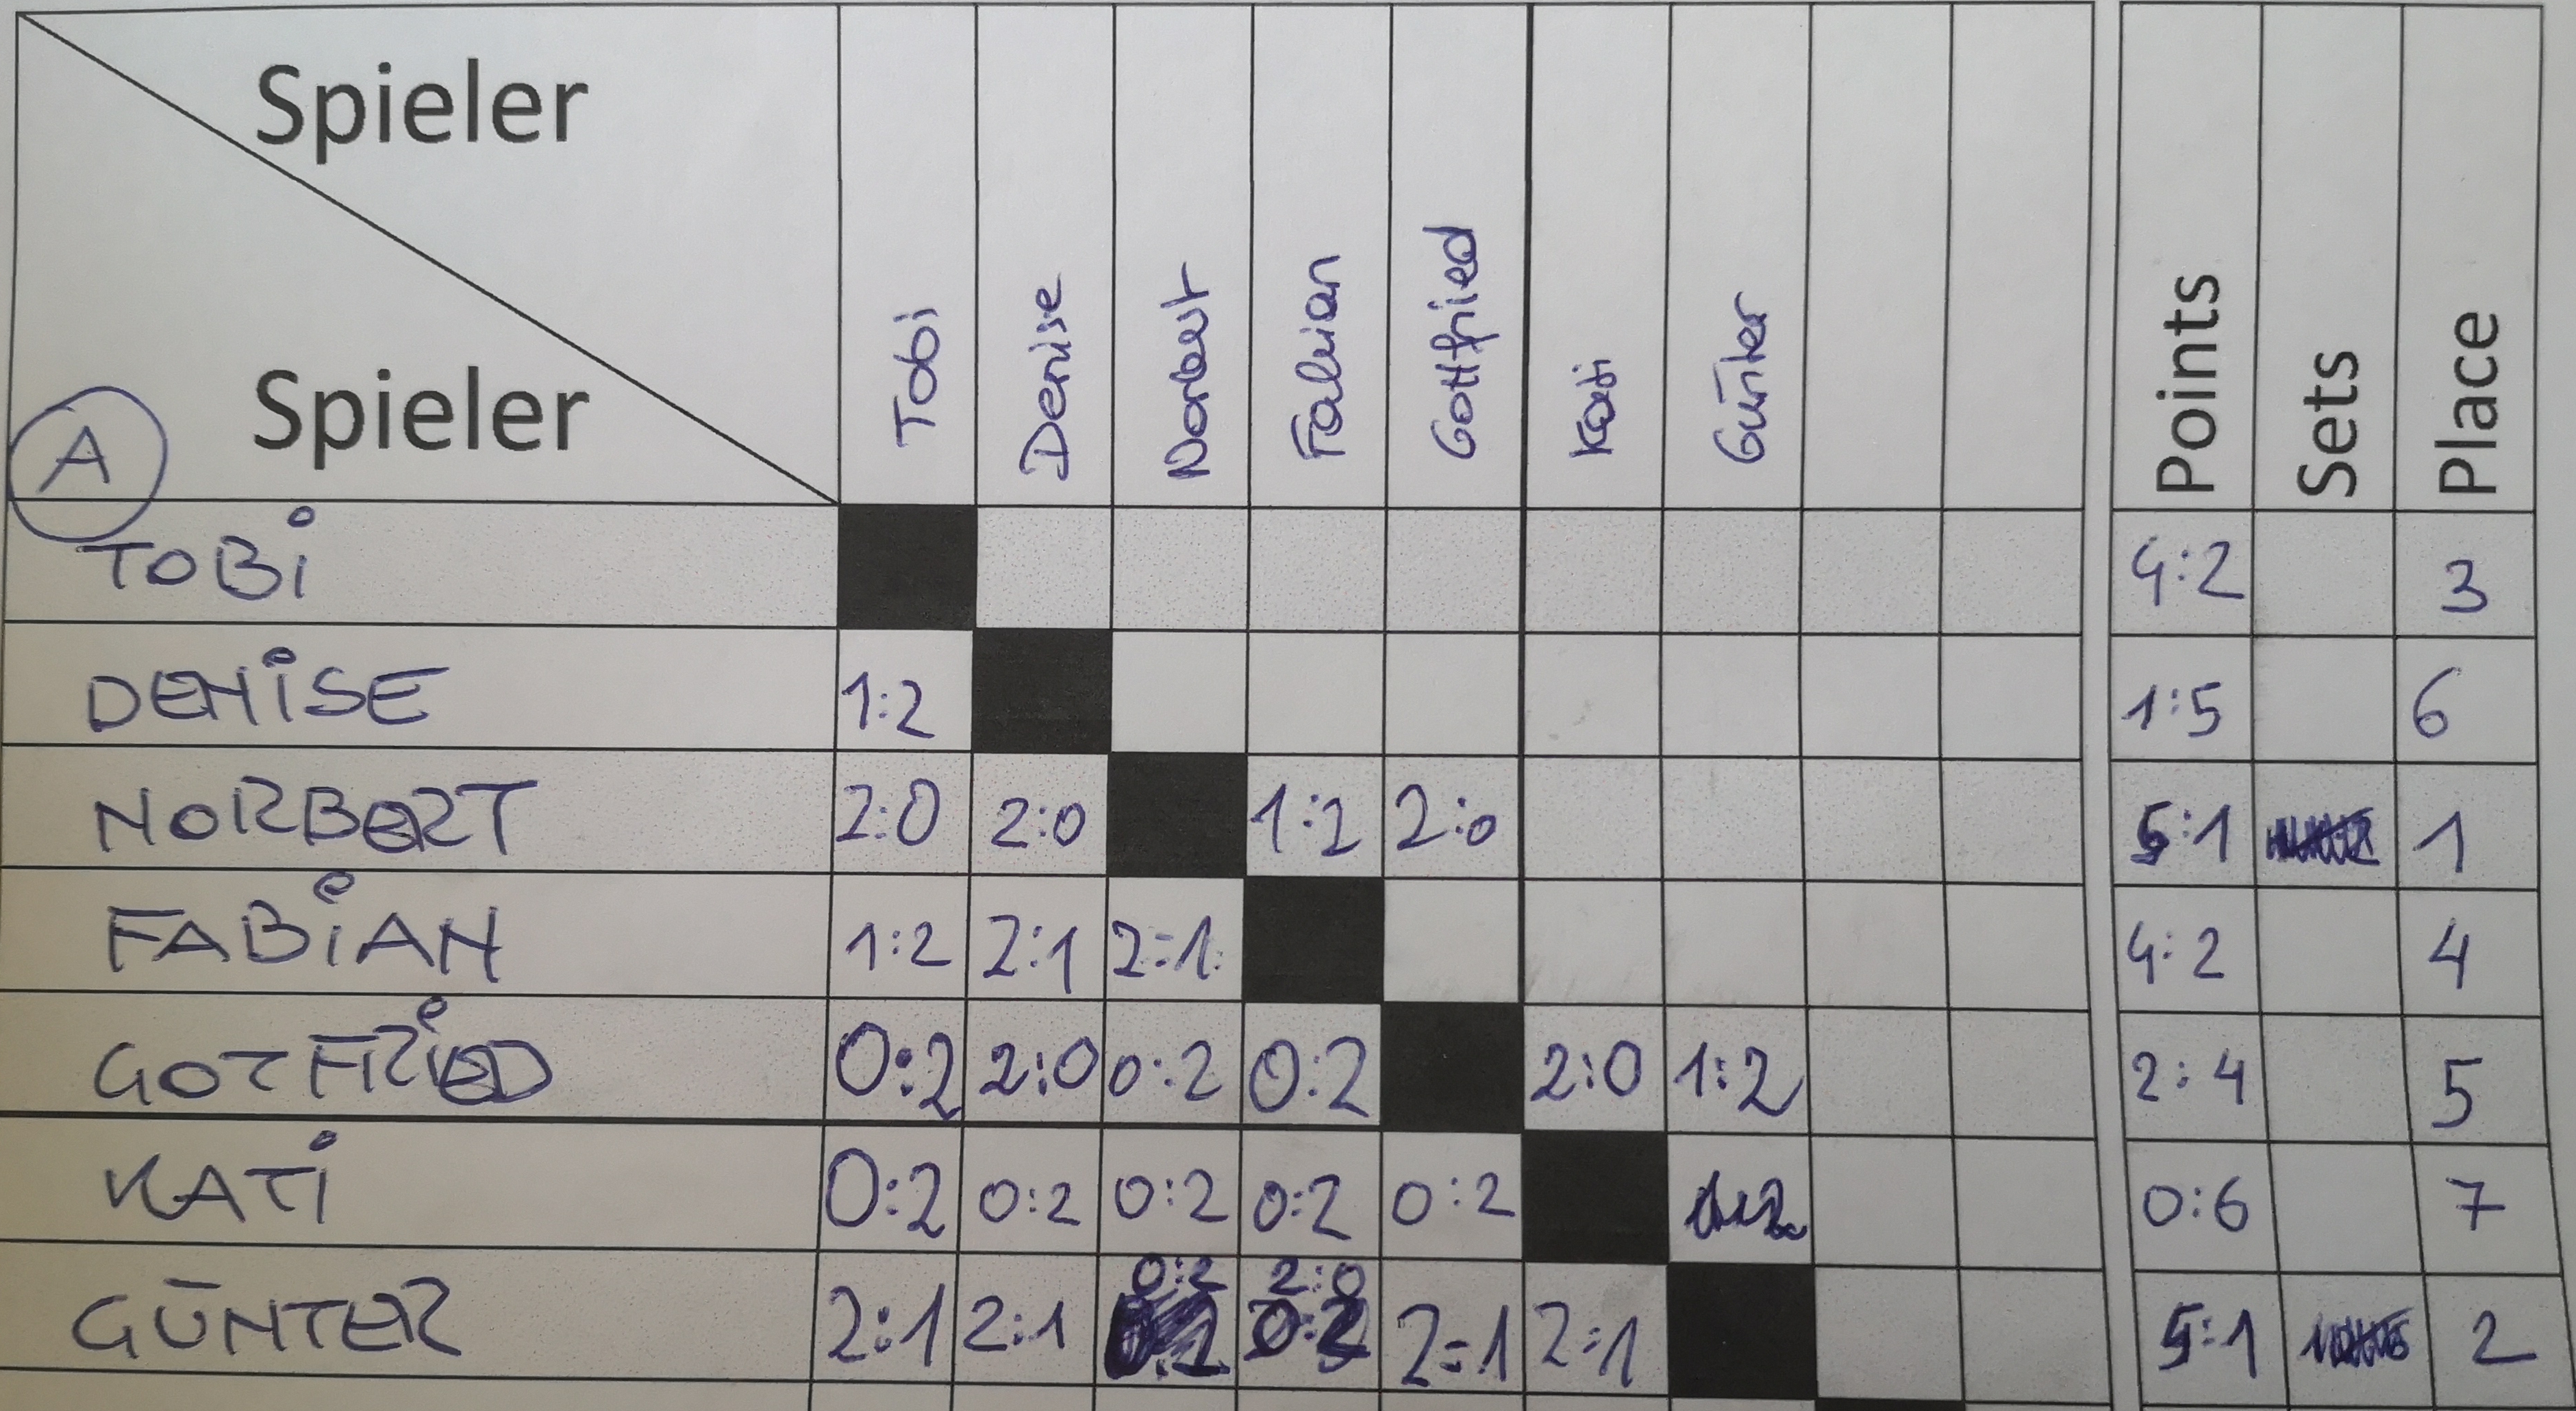 Spieler
Spieler
A
Tobi Denise Norbert Fabian Gottfried Kati Günter Points Sets Place
TOBi 4:2 3
DENiSE 1:2 1:5 6
NORBERT 2:0 2:0 1:2 2:0 5:1 1
FABiAN 1:2 2:1 2:1 4:2 4
GOTFRiED 0:2 2:0 0:2 0:2 2:0 1:2 2:4 5
KATi 0:2 0:2 0:2 0:2 0:2 1:2 0:6 7
GÜNTER 2:1 2:1 0:2 2:0 2:1 2:1 5:1 2